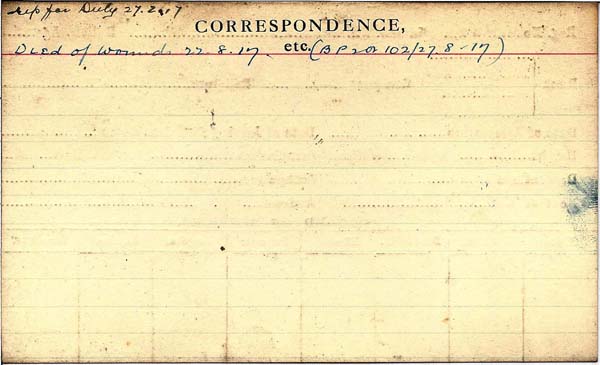 rep for Duty 27.2.17
CORRESPONDENCE,
Died of Wounds 22.8.17. etc. (B P 2 OR 102/27.8.17)